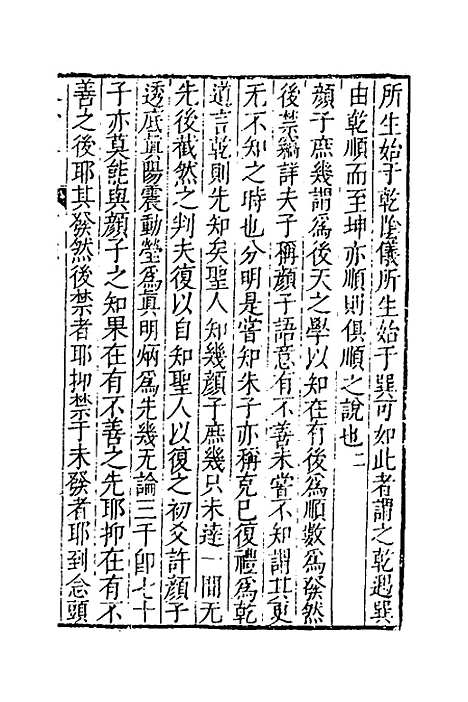 所生始于乾陰儀所生始于巽可如此者謂之乾遇巽
由乾順而至坤亦順則俱順之說也二
顏子庶幾謂爲後天之學以知在行後爲順數爲發然
後禁編詳夫子稱顏子語意有不善未嘗不知謂其更
无不知之時也分明是嘗知朱子亦稱克巳復禮爲乾
道言乾則先知矣聖人知幾顏子庶幾只未達一間无
先後截然之判夫復以自知聖人以復之初爻許顏子
透底眞陽震動瑩爲眞明炳爲先幾无論三千卽七十
子亦莫能與顏子之知果在有不善之先耶抑在有不
善之後耶其發然後禁者耶抑禁于未發者耶到念頭